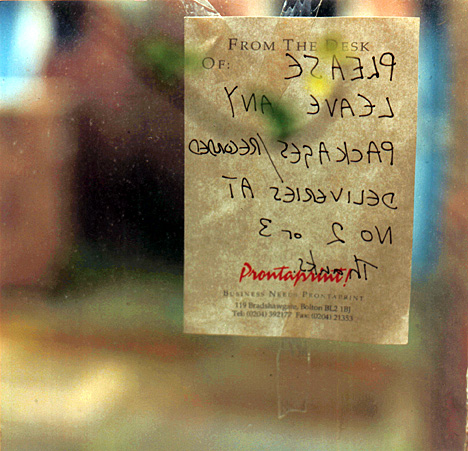 FROM THE DESK
OF:
PLEASE
LEAVE ANY
PACKAGES/RECORDED
DELIVERIES AT
NO 2 or 3
THANKS
Prontaprint!
BUSINESS NEEDS PRONTAPRINT
119 Bradshawgate, Bolton BL2 1BJ
Tel: (0204) 392177 Fax: (0204) 21353